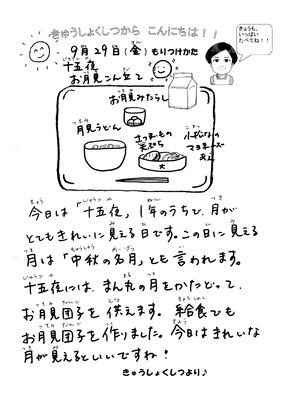 きゅうしょくしつから こんにちは！！
きょうも、
いっぱい
たべてね！！
9月29日(金)もりつけかた
十五夜
お月見こんだて
お月見みたらし
月見うどん
さつまいもの
天ぷら
小松なの
マヨネーズ
あえ
今日は「十五夜」1年のうちで、月が
とてもきれいに見える日です。この日に見える
月は「中秋の名月」とも言われます。
十五夜には、まん丸の月をかたどって、
お月見団子を供えます。給食でも
お月見団子を作りました。今日はきれいな
月が見えるといいですね！
きゅうしょくしつより♪